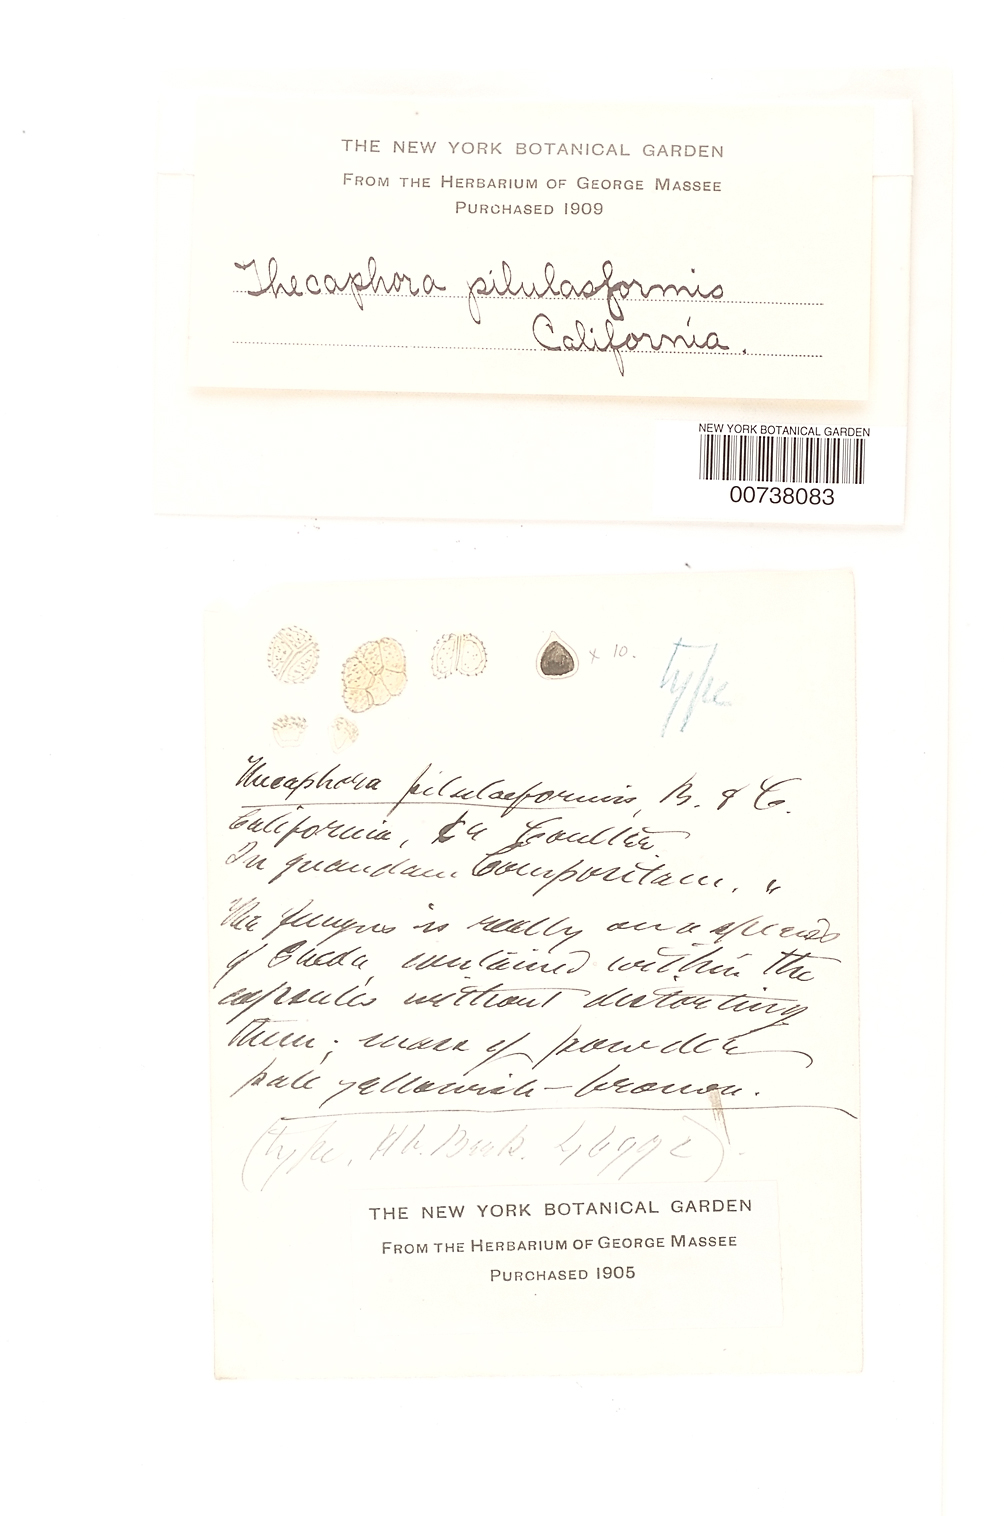 THE NEW YORK BOTANICAL GARDEN
FROM THE HERBARIUM OF GEORGE MASSEE
PURCHASED 1909
Thecaphora pilulaeformis
California.
NEW YORK BOTANICAL GARDEN
00738083
x 10.
type
Thecaphora pilulaeformis, B. & C.
California, Coulter
In quandam Compositam. "
The fungus is really on a species
of contained within the
capsules without distorting
them; mass of powder
pale yellowish-brown.
(type. Hb. Berk. 4699 )
THE NEW YORK BOTANICAL GARDEN
FROM THE HERBARIUM OF GEORGE MASSEE
PURCHASED 1905